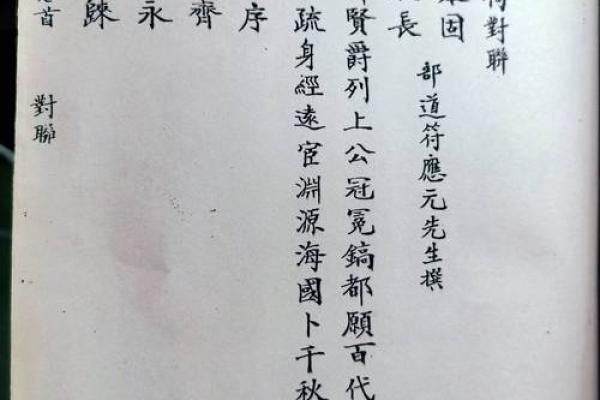 對聯
固
部道符應元先生撰
長
賢爵列上公冠冕鎬都願百代
疏身經遠宦淵源海國卜千秋
序
齊
永
首 對聯